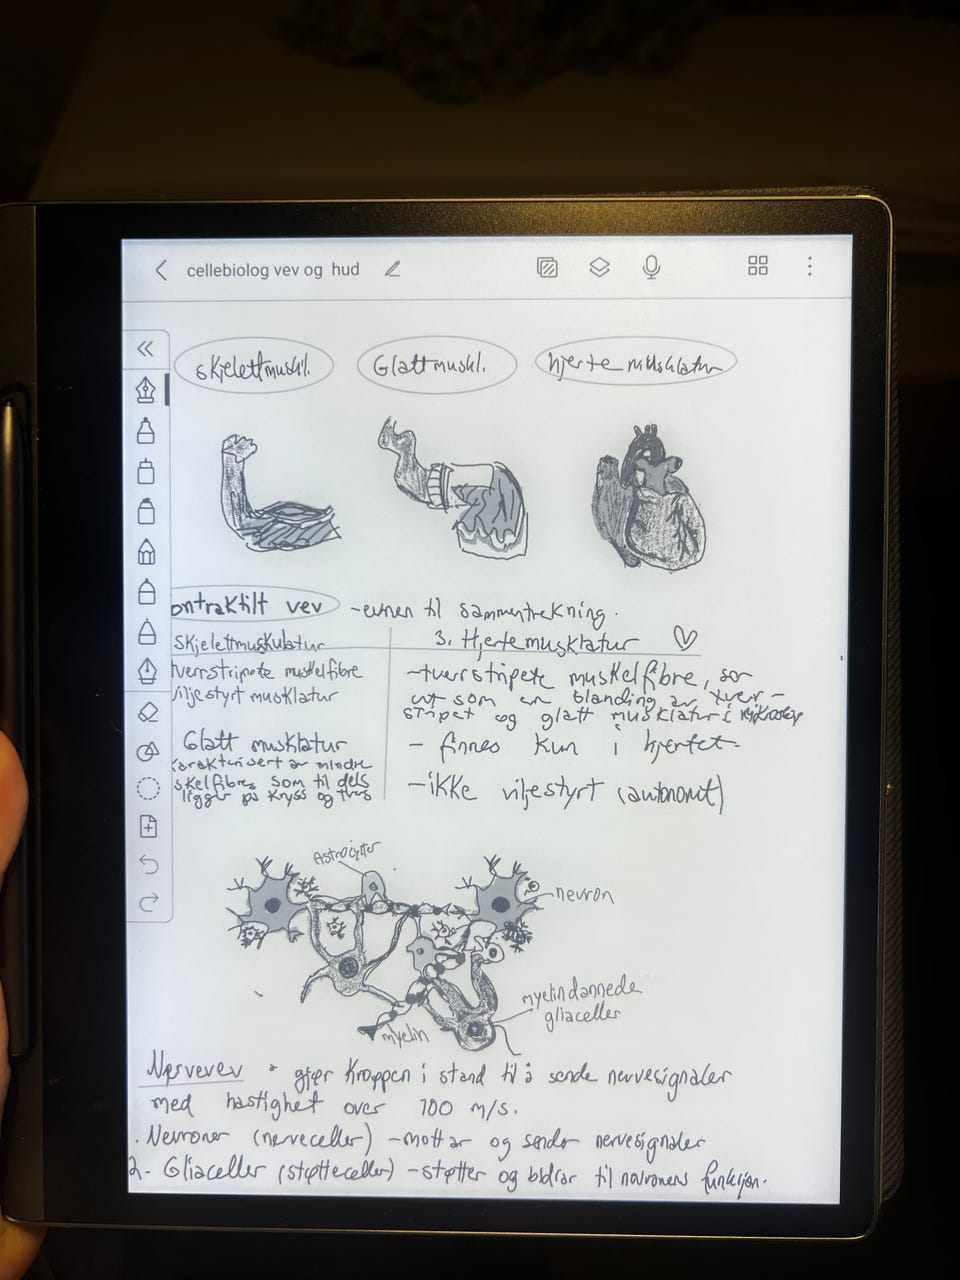 cellebiolog vev og hud
skjelettmuskl.
Glattmuskl.
hjertemusklatur
ontraktilt vev
-evnen til sammentrekning.
skjelettmuskulatur
tverrstripete muskelfibre
viljestyrt musklatur
Glatt musklatur
karakterisert av mindre
skelfibre som til dels
ligger på kryss og tvers
3. Hjertemusklatur
-tverrstripete muskelfibre, ser
ut som en blanding av tverr-
stripet og glatt musklatur i mikroskop
- finnes kun i hjertet.
-ikke viljestyrt (autonomt)
Astrocytter
nevron
myelindannede
gliaceller
myelin
Nervevev • gjør kroppen i stand til å sende nervesignaler
med hastighet over 100 m/s.
. Nevroner (nerveceller) -mottar og sender nervesignaler
2. Gliaceller (støtteceller) -støtter og bidrar til nevronens funksjon.